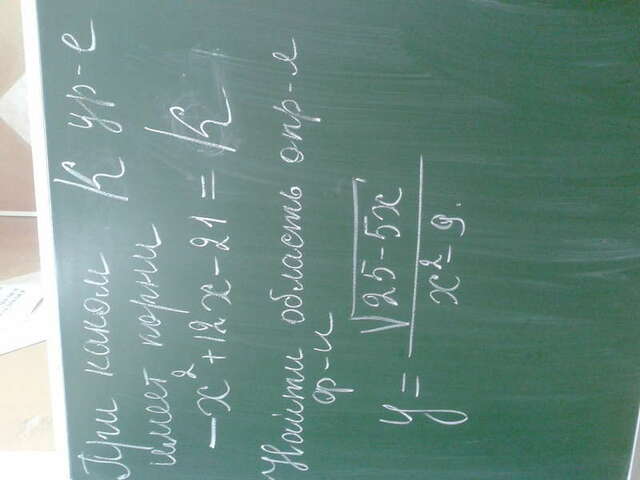 При каком K ур-е
имеет корни
-x²+12x-21=K
Найти область опр-я
ф-и
y = √(25-5x) / (x²-9).